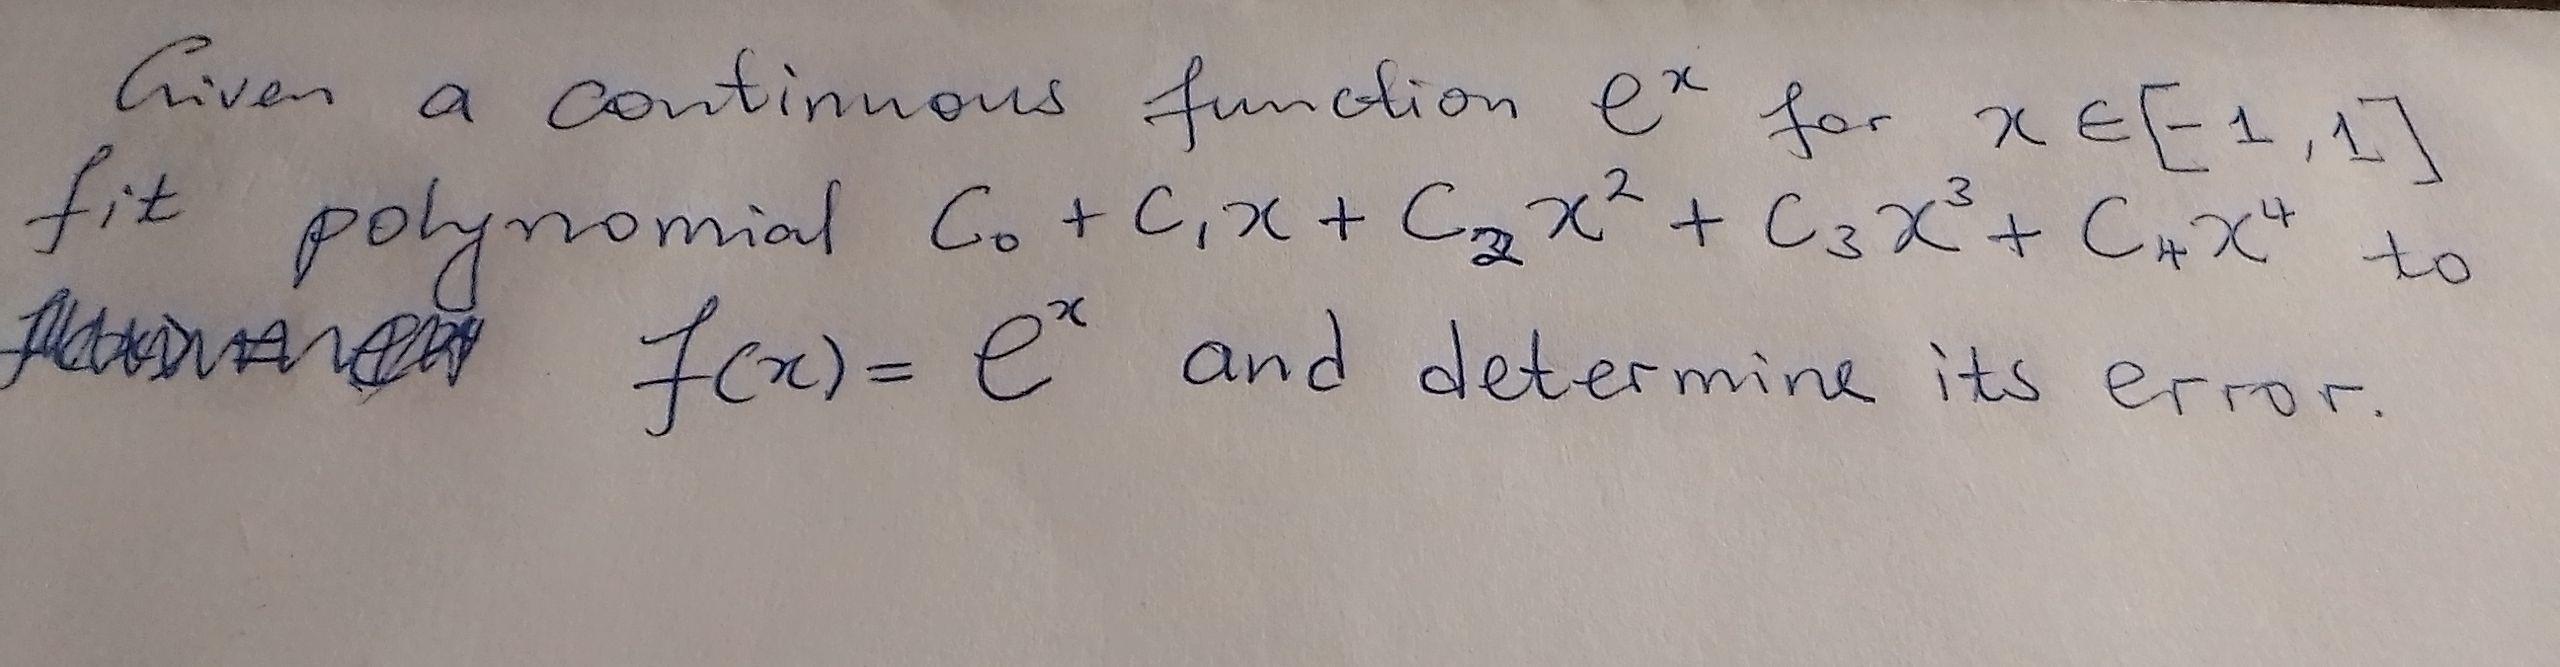 Given a continuous function eˣ for x ∈ [-1, 1]
fit polynomial C₀ + C₁x + C₂x² + C₃x³ + C₄x⁴ to
f(x) = eˣ and determine its error.